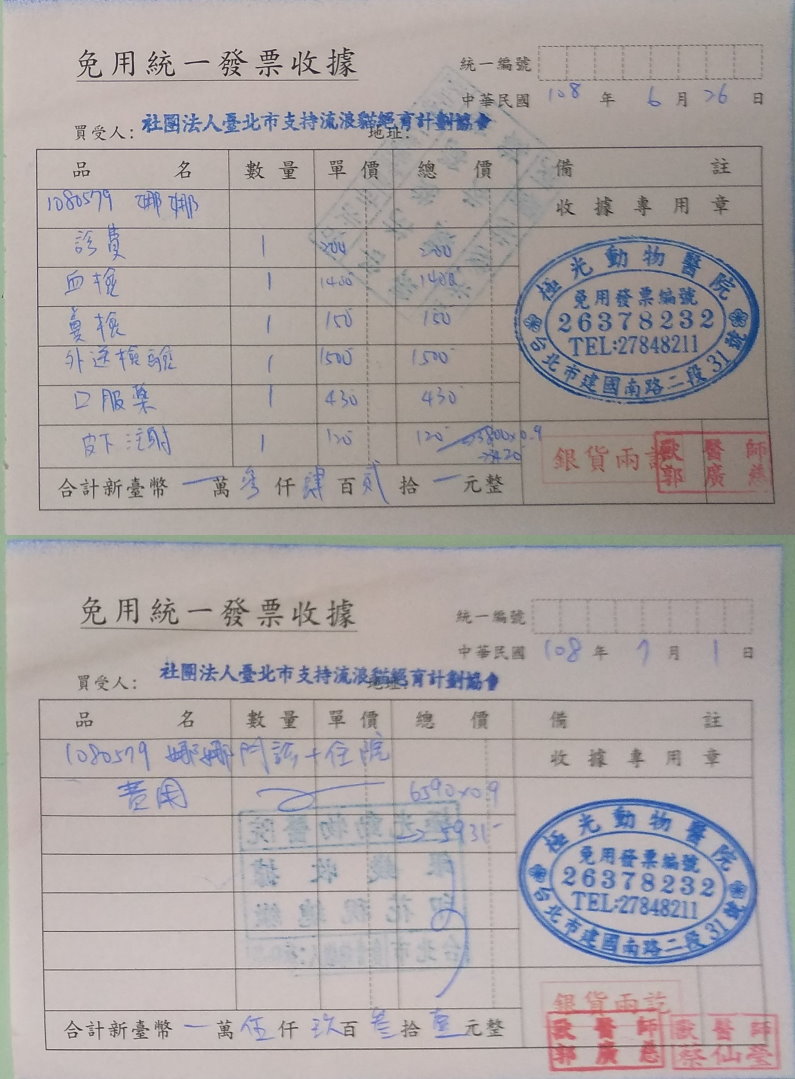 免用統一發票收據
統一編號
中華民國 108 年 6 月 26 日
買受人: 社團法人臺北市支持流浪貓絕育計劃協會 地址:
品名 數量 單價 總價 備註
1080579 娜娜 收據專用章
診費 1 200 200
血檢 1 1400 1400
糞檢 1 150 150
外送檢驗 1 1500 1500
口服藥 1 430 430
皮下注射 1 120 120 →3800×0.9
→3420
極光動物醫院
免用發票編號
26378232
TEL:27848211
台北市建國南路二段31號
銀貨兩訖
獸醫師
郭廣慈
合計新臺幣 一 萬 參 仟 肆 百 貳 拾 一 元整
免用統一發票收據
統一編號
中華民國 108 年 7 月 1 日
買受人: 社團法人臺北市支持流浪貓絕育計劃協會
品名 數量 單價 總價 備註
1080579 娜娜 門診+住院 收據專用章
費用 6590×0.9
→5931
極光動物醫院
免用發票編號
26378232
TEL:27848211
台北市建國南路二段31號
銀貨兩訖
獸醫師
郭廣慈
獸醫師
合計新臺幣 一 萬 伍 仟 玖 百 參 拾 壹 元整